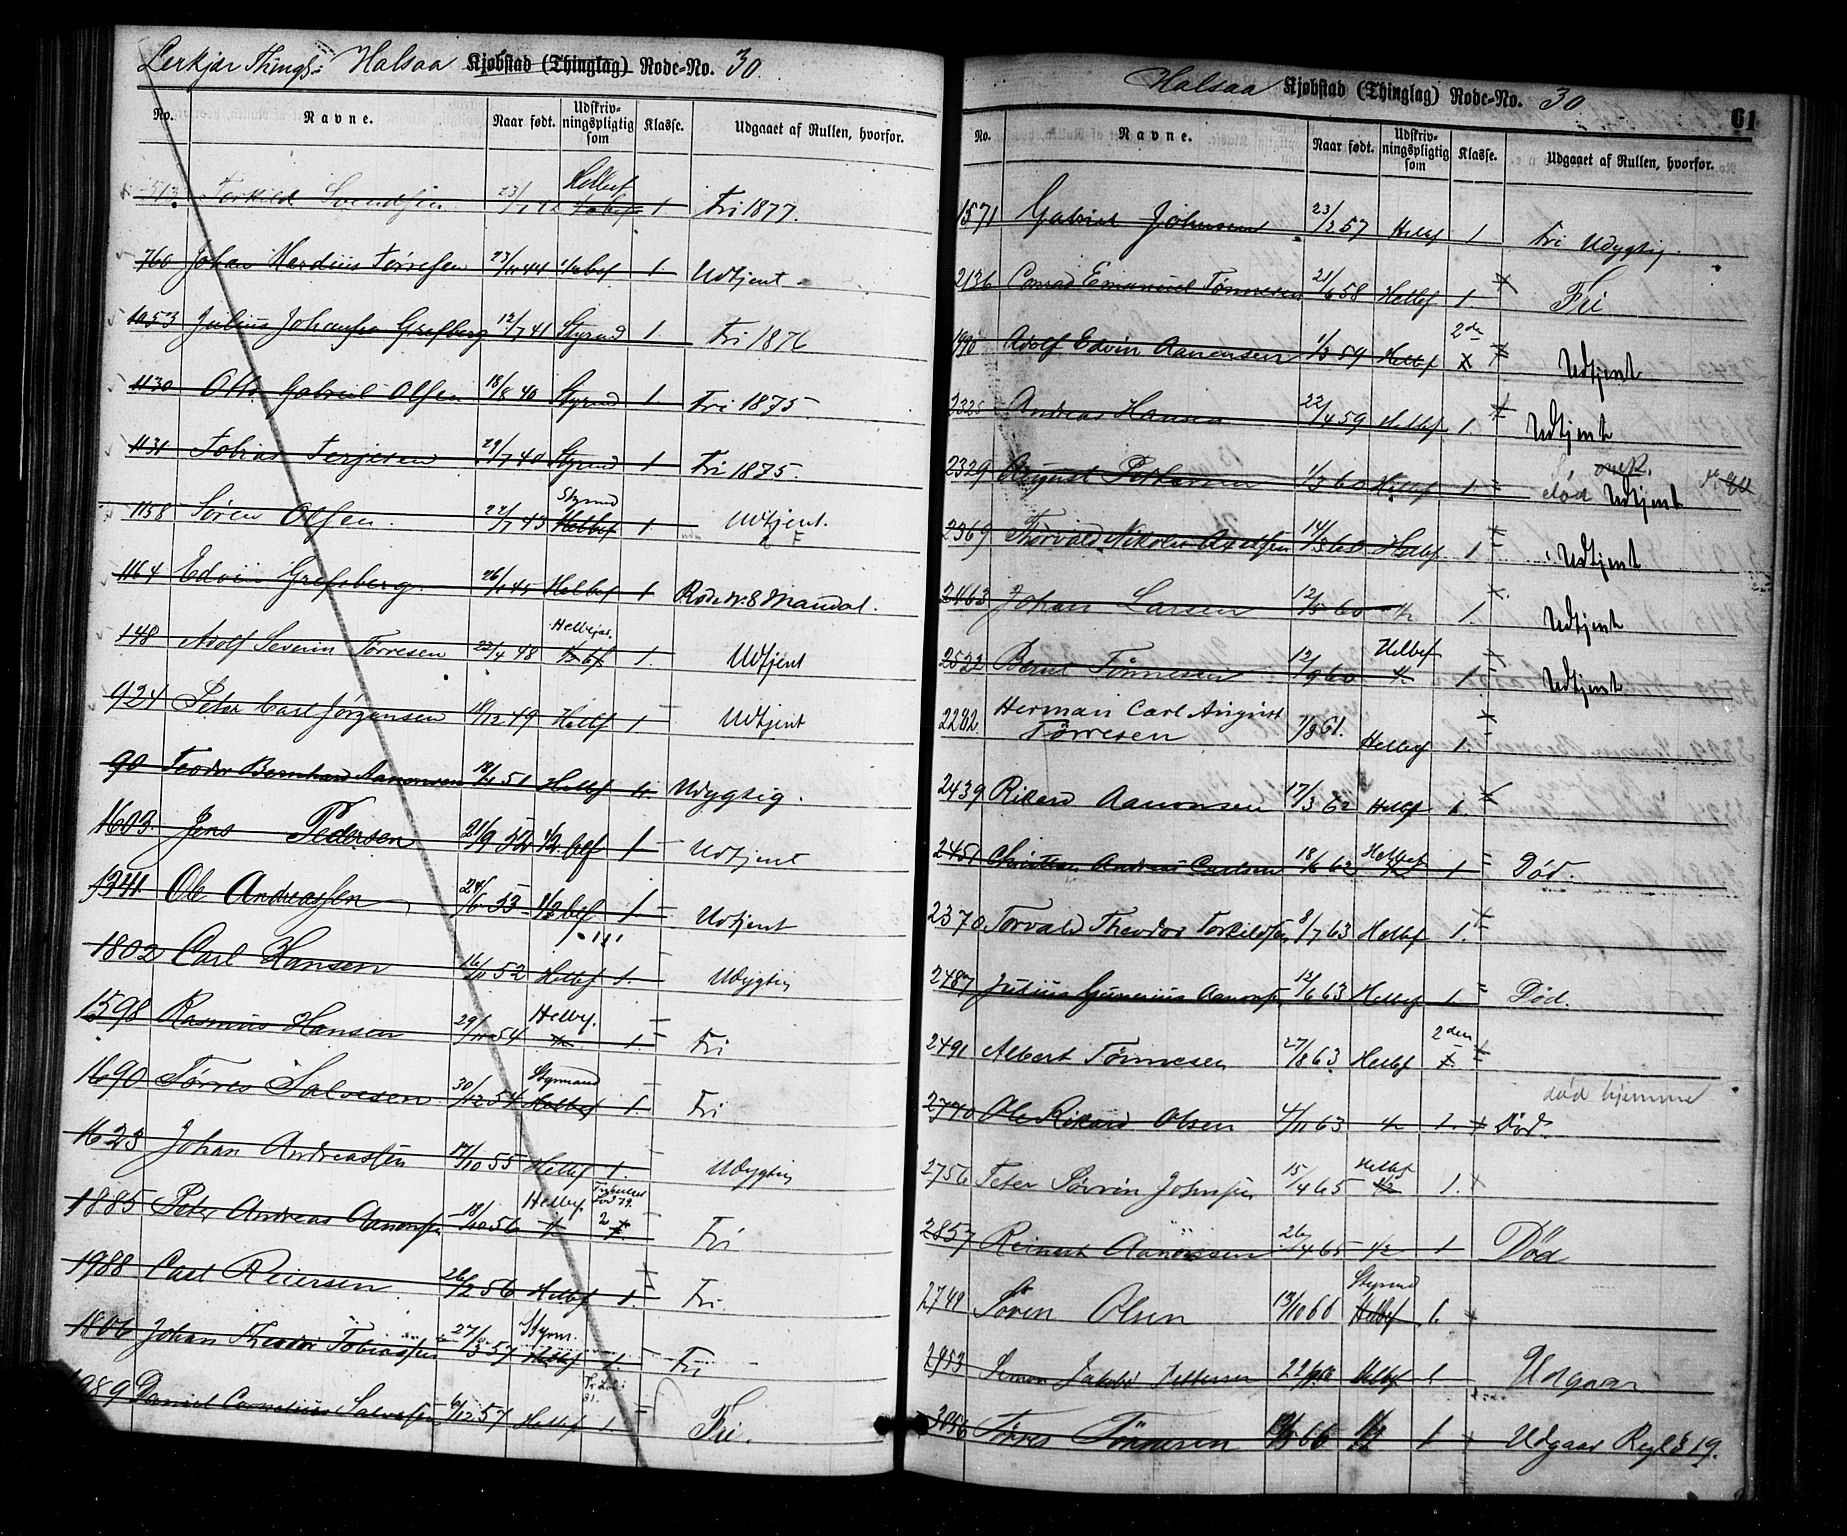 Halsaa Kjøbstad (Thinglag) Rode-No. 30.
No. Navne. Naar født. Udskriv-ningspligtig som Klasse. Udgaaet af Rullen, hvorfor.
Torkild Svendsen Helbef 1 Fri 1877.
760 Johan 23/11 44 1 Udtjent
1053 Julius Johansen Grefberg 12/7 41 Styrmd 1. Fri 1876
1130 Otto Gabriel Olsen 18/8 40 Styrmd 1 Fri 1875.
1131 Tobias Terjesen 29/7 40 Styrmd 1 Fri 1875.
1158 Søren Olsen. 22/7 43 Styrmd Helbef 1 Udtjent.
1164 Edvin Grefsberg 26/1 45 Helbef 1 Rode N. 8 Mandal.
148 Adolf Severin Tørresen 22/4 48 1. Udtjent
924 Peter Carl Jørgensen 12 49 Helbf 1 Udtjent
90 Teodor Bernhard Aanonsen 18/1 51 Helbf Udygtig.
1603. Jens Pedersen 21/9 52 1/2 bef 1 Udtjent
1341. Ole Andreassen 24/6 53 1/2 bef 1. Udtjent
1802 Carl Hansen 16/11 52 Helbf 1. Udygtig
1598 Rasmus Hansen 29/11 54 Helbef. 1. Fri
1690 Tørres Salvesen 30/12 54 Styrmand Helbef 1. Fri
1623 Johan Andreassen 17/10 55 Helbf 1. Udygtig
1885 Peter Andreas Aanonsen 18/10 56 Helbef. 2 Fri
1988 Carl Reiersen 26/2 56 Helbf 1. Fri.
1806 Johan Theodor Tobiassen 27/3 57 Styrm. Helbf 1. Fri
1989 Daniel Cornelius Salvesen 6/12 57 Helbf 1 Fri.
Halsaa Kjøbstad (Thinglag) Rode-No. 30 61
No. Navne. Naar født. Udskriv-ningspligtig som Klasse. Udgaaet af Rullen, hvorfor.
1571 Gabriel Johnsen 23/2 57 Helbf 1 Fri Udygtig.
2136 Conrad Emanuel Tønnesen 21/6 58 Helbf 1 Fri
1990 Adolf Edvin Aanensen 1/3 59 Helbf 2de Udtjent
2325 Andreas Hansen 22/4 59 Helbf 1. Udtjent
2329 August Pettersen 1/3 60 Helbf 1. død Udtjent
2369 Thorvald Nikolai Axelsen 14/3 60 Helbf 1 Udtjent
2463 Johan Larsen 12/5 60 1/2 1. Udtjent
2522 Bernt Tønnesen 12/9 60 Helbef 1 Udtjent
2282 Herman Carl August
Tørresen 7/8 61. Helbef 1.
2439 Rikard Aanonsen 17/3 62 Helbf 1.
2451 Christian Andreas Carlsen 18/6 62 Helbef 1 Død.
2370 Torvald Theodor Torkildsen 8/7 63 Helbf 1.
2487 Julius Gunerius Aanonsen 12/6 63 Helbef 1 Død.
2491 Albert Tønnesen 27/8 63 Helbf 2den
død hjemme
2770 Ole Rikard Olsen 4/11 63 1/2 1. Død.
2756 Peter Sørrin Johnsen 15/4 65 Helbf 1/2 1.
2857 Reinert Aanonsen 26/4 65 1/2 1 Død
2749 Søren Olsen 13/10 66 Styrmd Helbef 1.
2953 Simon Jakob Pettersen Helbf 1 Udgaar
3056 Tørres Tønnesen 66 1/2 1 Udgaar Regl § 19.